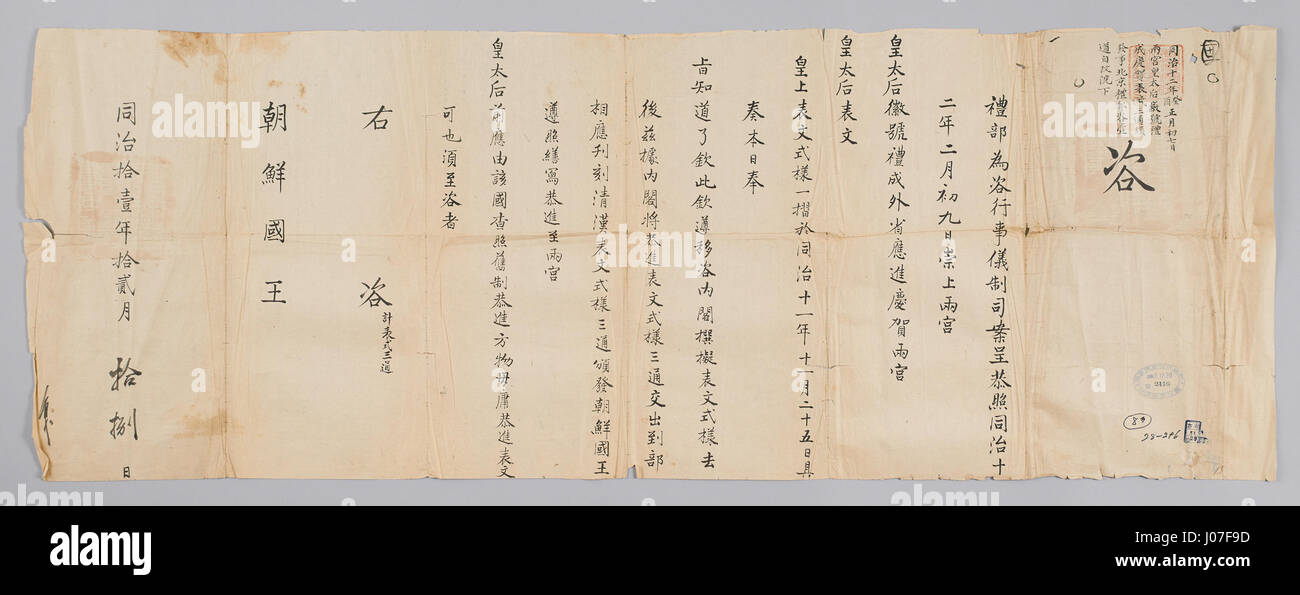 同治十二年癸酉正月初七日
兩宮皇太后徽號禮
成慶賀表
北京禮部咨
道
咨
禮部為咨行事儀制司案呈恭照同治十
二年二月初九日崇上兩宮
皇太后徽號禮成外省應進慶賀兩宮
皇太后表文
皇上表文式樣一摺於同治十一年十一月二十五日具
奏本日奉
旨知道了欽此欽遵移咨內閣撰擬表文式樣去
後茲據內閣將恭進表文式樣三通交出到部
相應刋刻清漢表文式樣三通頒發朝鮮國王
遵照繕寫恭進至兩宮
皇太后前應由該國查照舊制恭進方物毋庸恭進表文
可也湏至咨者
右咨
計表式三通
朝鮮國王
同治拾壹年拾貳月拾捌日
2416
83
28-246
alamy
alamy stock photo
J07F9D
www.alamy.com